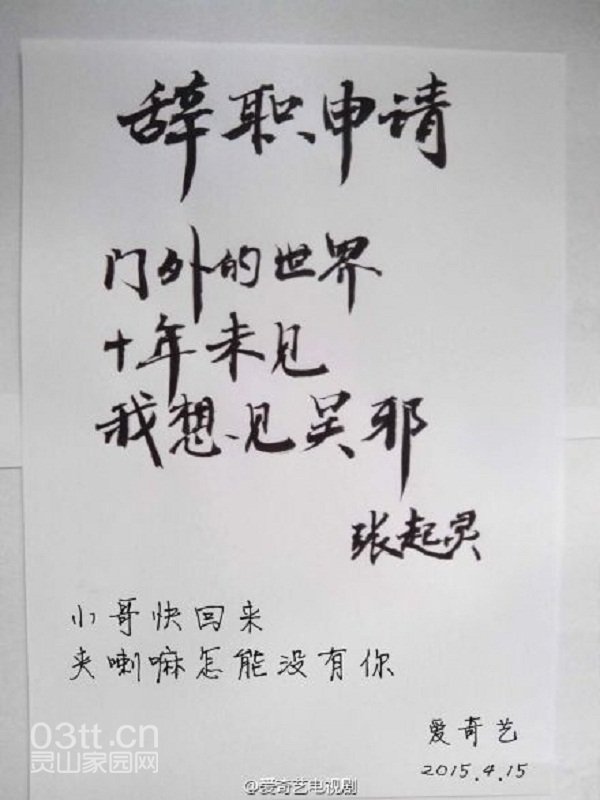 辞职申请
门外的世界
十年未见
我想见吴邪
张起灵
小哥快回来
夹喇嘛怎能没有你
爱奇艺
2015.4.15
03tt.cn
灵山家园网
@爱奇艺电视剧